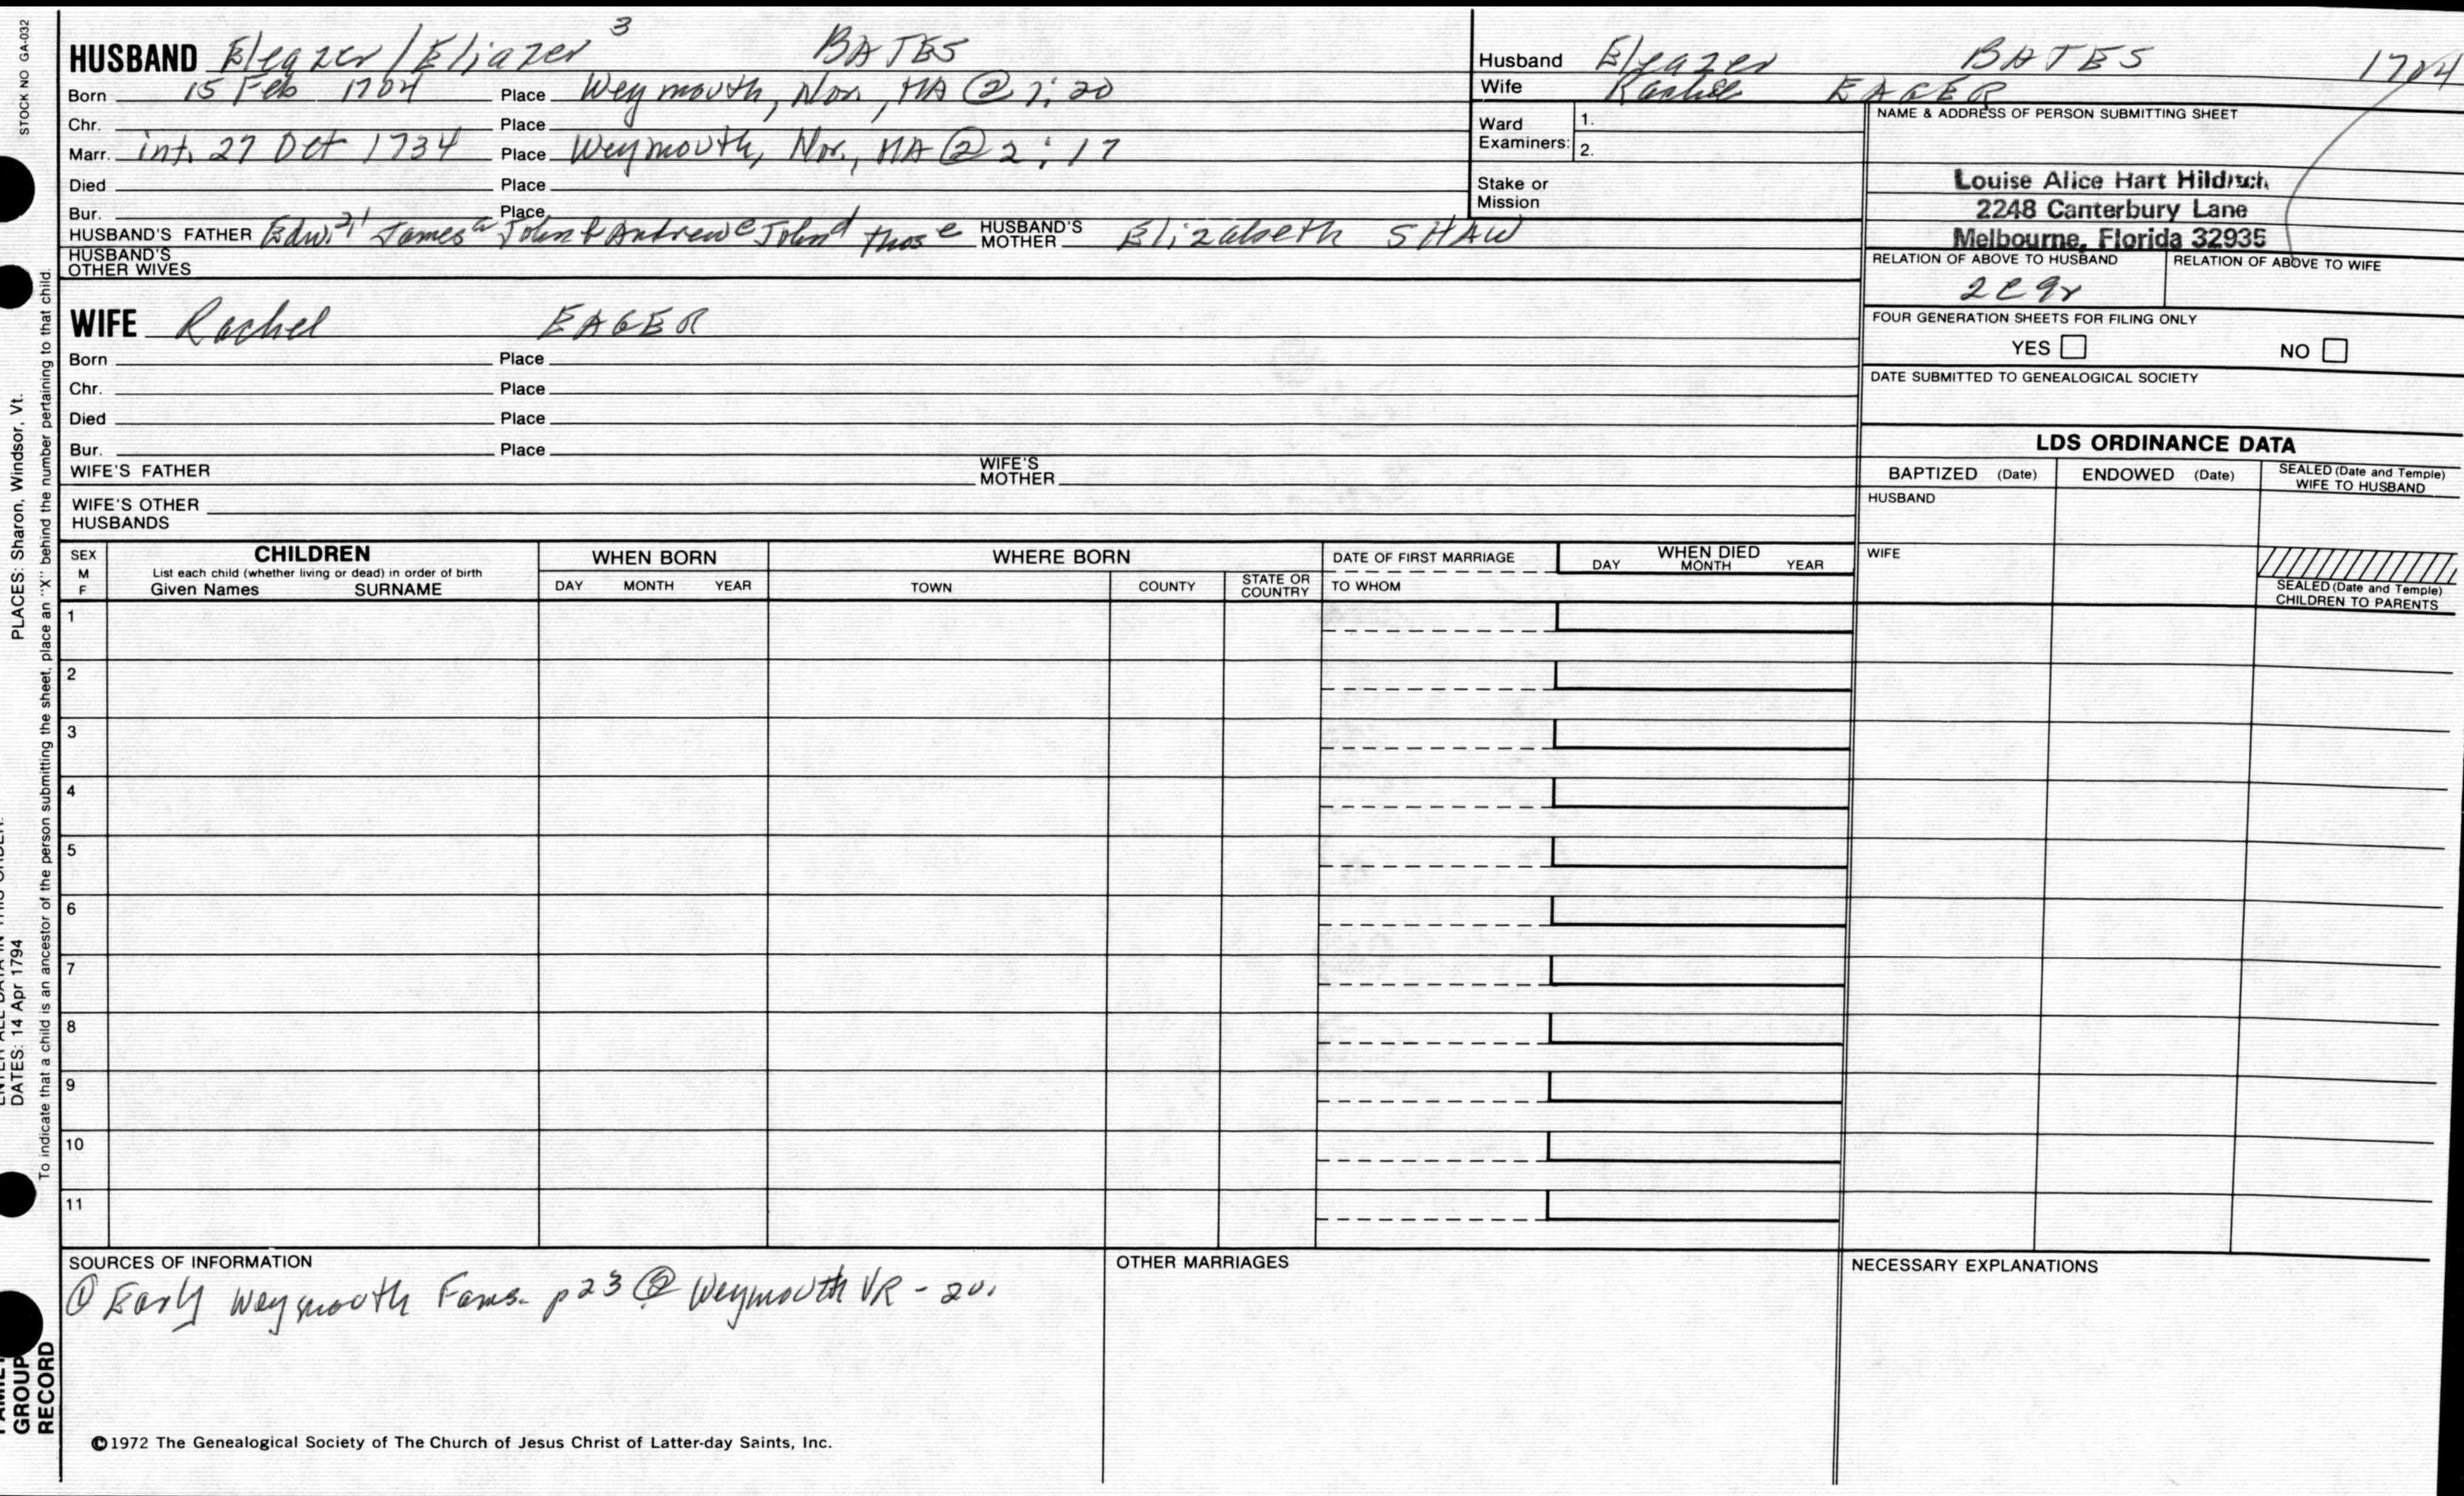 STOCK NO GA-032
HUSBAND Eleazer / Eliazer 3 BATES
Born 15 Feb 1704 Place Weymouth, Nor., MA @ 1:20
Chr. Place
Marr. int. 27 Oct 1734 Place Weymouth, Nor., MA @ 2:17
Died Place
Bur. Place
HUSBAND'S FATHER Edw. 2,1 James a John b Andrew c John d Thos e HUSBAND'S MOTHER Elizabeth SHAW
HUSBAND'S OTHER WIVES
Husband Eleazer BATES 1704
Wife Rachel EAGER
Ward Examiners: 1.
2.
Stake or Mission
NAME & ADDRESS OF PERSON SUBMITTING SHEET
Louise Alice Hart Hilditch
2248 Canterbury Lane
Melbourne, Florida 32935
RELATION OF ABOVE TO HUSBAND RELATION OF ABOVE TO WIFE
2C9r
FOUR GENERATION SHEETS FOR FILING ONLY
YES NO
DATE SUBMITTED TO GENEALOGICAL SOCIETY
WIFE Rachel EAGER
Born Place
Chr. Place
Died Place
Bur. Place
WIFE'S FATHER WIFE'S MOTHER
WIFE'S OTHER HUSBANDS
LDS ORDINANCE DATA
BAPTIZED (Date) ENDOWED (Date) SEALED (Date and Temple) WIFE TO HUSBAND
HUSBAND
WIFE
SEALED (Date and Temple) CHILDREN TO PARENTS
SEX M F
CHILDREN
List each child (whether living or dead) in order of birth
Given Names SURNAME
WHEN BORN
DAY MONTH YEAR
WHERE BORN
TOWN COUNTY STATE OR COUNTRY
DATE OF FIRST MARRIAGE
TO WHOM
WHEN DIED
DAY MONTH YEAR
1
2
3
4
5
6
7
8
9
10
11
SOURCES OF INFORMATION
① Early Weymouth Fams. p 23 @ Weymouth VR - 20.
OTHER MARRIAGES
NECESSARY EXPLANATIONS
©1972 The Genealogical Society of The Church of Jesus Christ of Latter-day Saints, Inc.
PLACES: Sharon, Windsor, Vt.
DATES: 14 Apr 1794
To indicate that a child is an ancestor of the person submitting the sheet, place an "X" behind the number pertaining to that child.
FAMILY
GROUP
RECORD